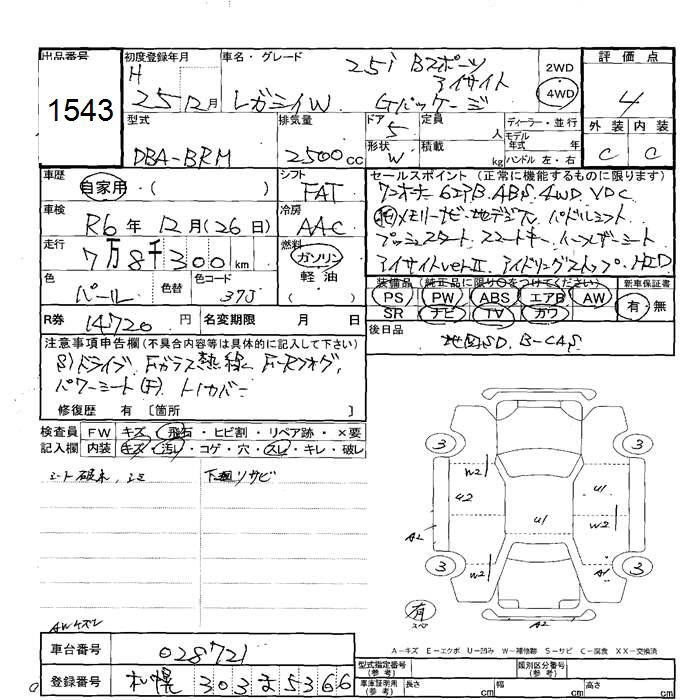 出品番号
1543
初度登録年月
H
25 12月
車名・グレード
2.5i Bスポーツ
アイサイト
レガシィW Gパッケージ
2WD
4WD
評価点
4
外装 内装
C C
型式
DBA-BRM
排気量
2500cc
ドア
5
形状
W
定員
人
積載
kg
ディーラー・並行
モデル
年式 年
ハンドル 左・右
車歴
自家用・( )
シフト
FAT
セールスポイント (正常に機能するものに限ります)
ワンオーナー 6エアB. ABS. 4WD VDC
メモリーナビ・地デジTV パドルシフト
プッシュスタート スマートキー, ハーフレザーシート
アイサイトverⅡ アイドリングストップ. HID
車検
R6年 12月(26日)
冷房
AAC
走行
7万8千300km
燃料
ガソリン
軽油
( )
色
パール
色替
色コード
37J
装備品 (純正品に限り○をつけてください)
PS PW ABS エアB AW
SR ナビ TV カワ
新車保証書
有・無
R券 14720円
名変期限 月 日
後日品
地図SD. B-CAS
注意事項申告欄(不具合内容等は具体的に記入して下さい)
SIドライブ. Fガラス熱線 F・Rフォグ,
パワーシート(F). トノカバー
修復歴 有 〔箇所 〕
検査員
記入欄
FW キズ・飛石・ヒビ割・リペア跡・×要
内装 キズ・汚れ・コゲ・穴・スレ・キレ・破レ
シート破れ, シミ
下廻リサビ
3 3
W2 U2 U1 U1 W2
A2
3 W2 A1 3
有
スペア
A2
AWキズレ
A-キズ E-エクボ U-凹み W-補修跡 S-サビ C-腐食 XX-交換済
車台番号
028721
登録番号
札幌 303 ま 5366
型式指定番号
(参考)
類別区分番号
(参考)
車庫証明用
(参考)
長さ cm
幅 cm
高さ cm